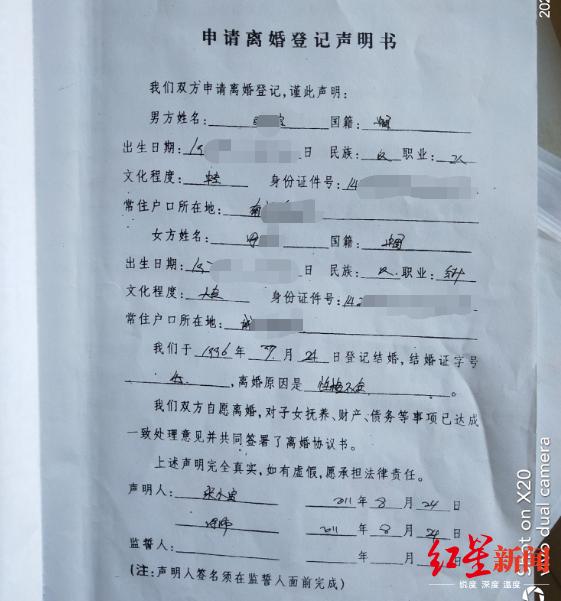 申请离婚登记声明书
我们双方申请离婚登记,谨此声明:
男方姓名: 国籍:中国
出生日期:19 日 民族:汉 职业:工人
文化程度: 身份证件号:14
常住户口所在地:
女方姓名: 国籍:中国
出生日期:19 日 民族:汉 职业:
文化程度:大专 身份证件号:142
常住户口所在地:
我们于1996年 月24日登记结婚,结婚证字号
,离婚原因是性格不合。
我们双方自愿离婚,对子女抚养、财产、债务等事项已达成
一致处理意见并共同签署了离婚协议书。
上述声明完全真实,如有虚假,愿承担法律责任。
声明人: 2011年8月24日
2011年8月24日
监誓人: 年 月 日
(注:声明人签名须在监誓人面前完成)
红星新闻
锐度 深度 温度
Shot on X20
vivo dual camera
202